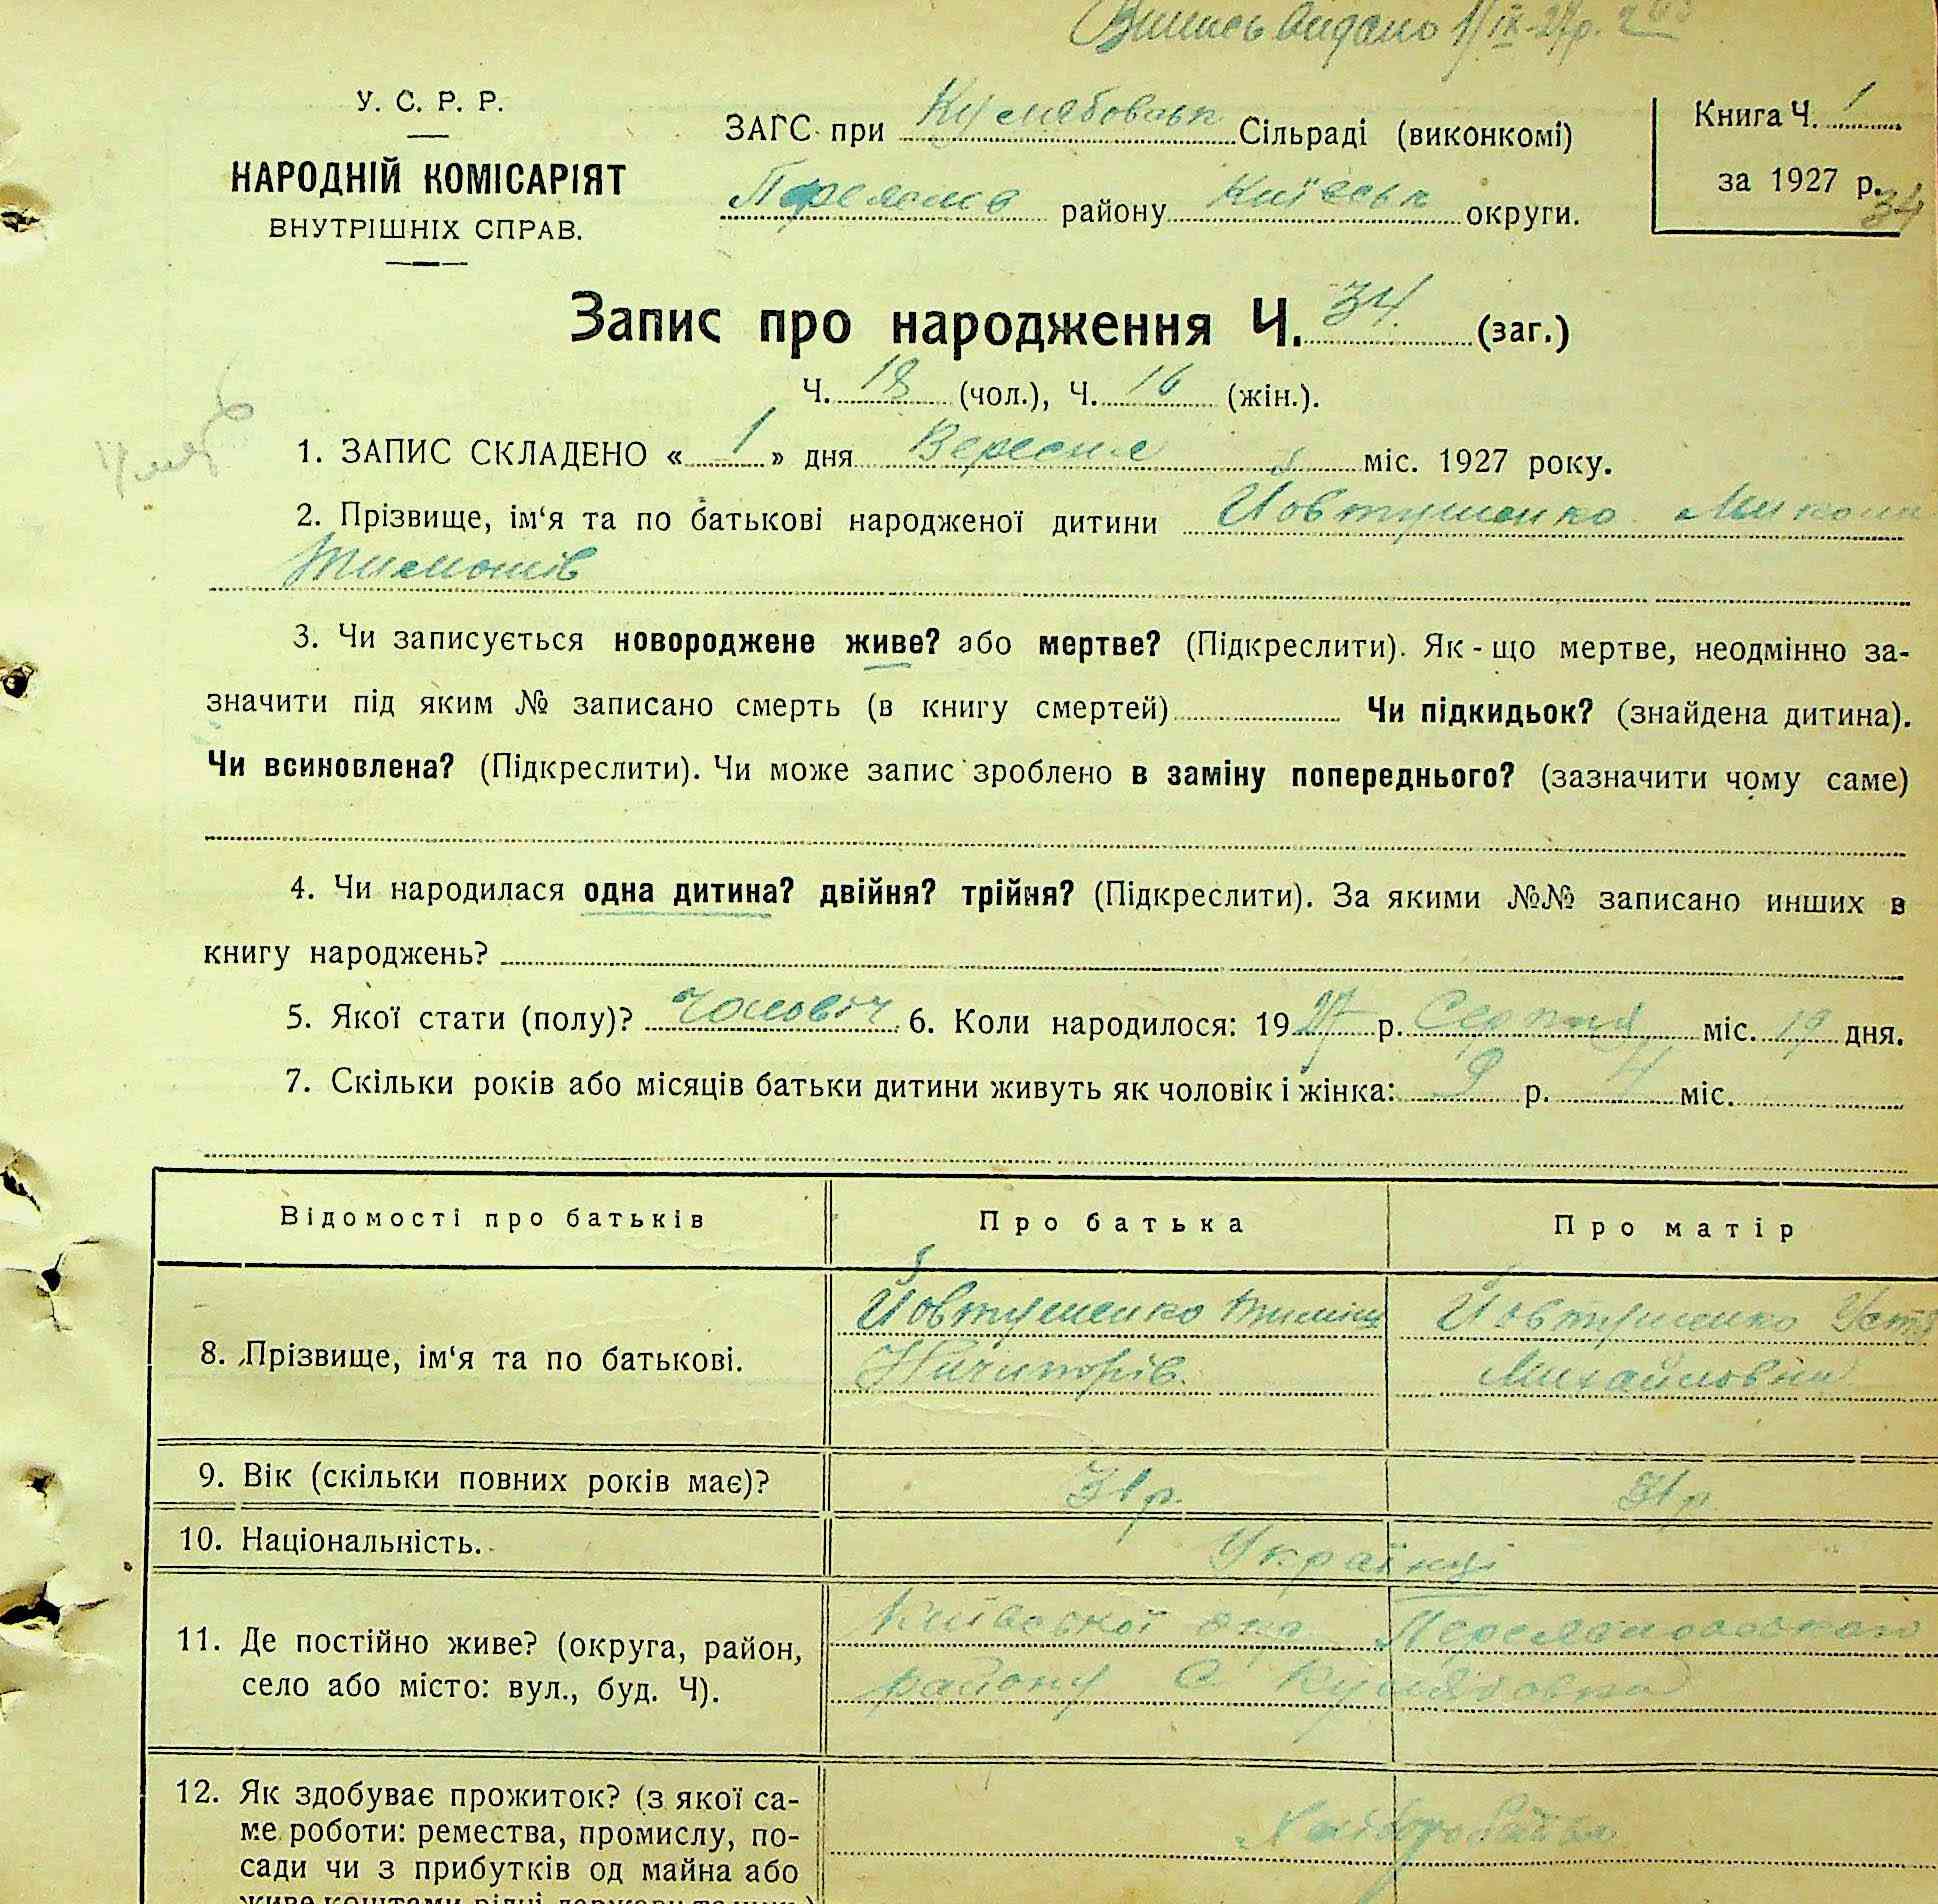 Випись видано 1/IX-27р.
У. С. Р. Р.
НАРОДНІЙ КОМІСАРІЯТ
ВНУТРІШНІХ СПРАВ.
ЗАГС при Кулябовськ Сільраді (виконкомі)
Переясла району Київськ округи.
Книга Ч. 1
за 1927 р.
34
Запис про народження Ч. 34 (заг.)
Ч. 18 (чол.), Ч. 16 (жін.).
1. ЗАПИС СКЛАДЕНО « 1 » дня Вересня міс. 1927 року.
2. Прізвище, ім‘я та по батькові народженої дитини Йовтушенко Микола
Тимошів
3. Чи записується новороджене живе? або мертве? (Підкреслити). Як - що мертве, неодмінно за-
значити під яким № записано смерть (в книгу смертей) Чи підкидьок? (знайдена дитина).
Чи всиновлена? (Підкреслити). Чи може запис зроблено в заміну попереднього? (зазначити чому саме)
4. Чи народилася одна дитина? двійня? трійня? (Підкреслити). За якими №№ записано инших в
книгу народжень?
5. Якої стати (полу)? чоловіч 6. Коли народилося: 1927 р. Серпня міс. 19 дня.
7. Скільки років або місяців батьки дитини живуть як чоловік і жінка: 9 р. 4 міс.
Відомості про батьків Про батька Про матір
8. Прізвище, ім‘я та по батькові. Йовтушенко Тиміш Йовтушенко Устя
Ничипорів. Михайловна
9. Вік (скільки повних років має)? 31 р. 31 р.
10. Національність. Українці
11. Де постійно живе? (округа, район, Київської окр. Переяславського
село або місто: вул., буд. Ч). району С. Кулябовка
12. Як здобуває прожиток? (з якої са-
ме роботи: ремества, промислу, по- Хлібороби
сади чи з прибутків од майна або